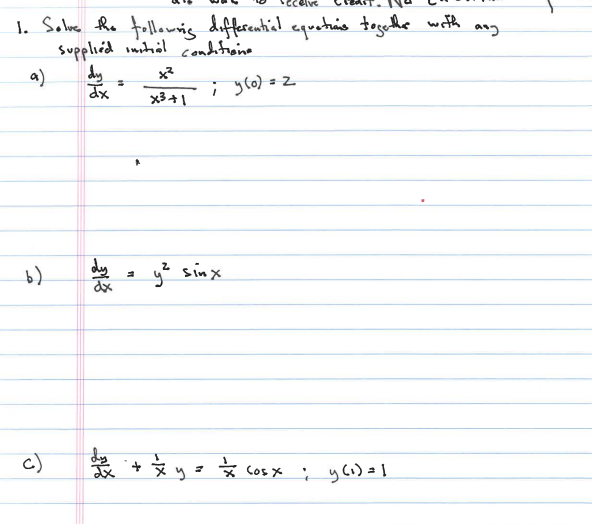 receive credit. No
1. Solve the following differential equations together with any
supplied initial conditions
a) dy/dx = x²/(x³+1) ; y(0) = 2
b) dy/dx = y² sin x
c) dy/dx + 1/x y = 1/x cos x ; y(1) = 1